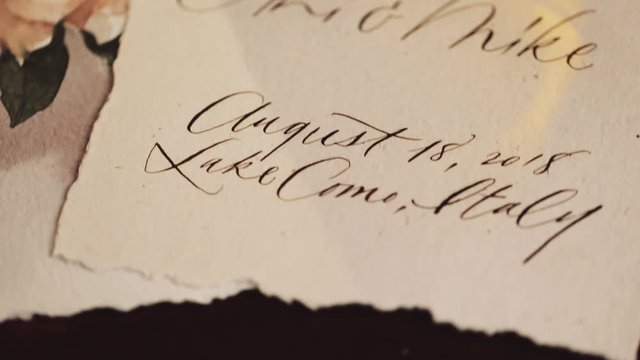 & Mike
August 18, 2018
Lake Como, Italy